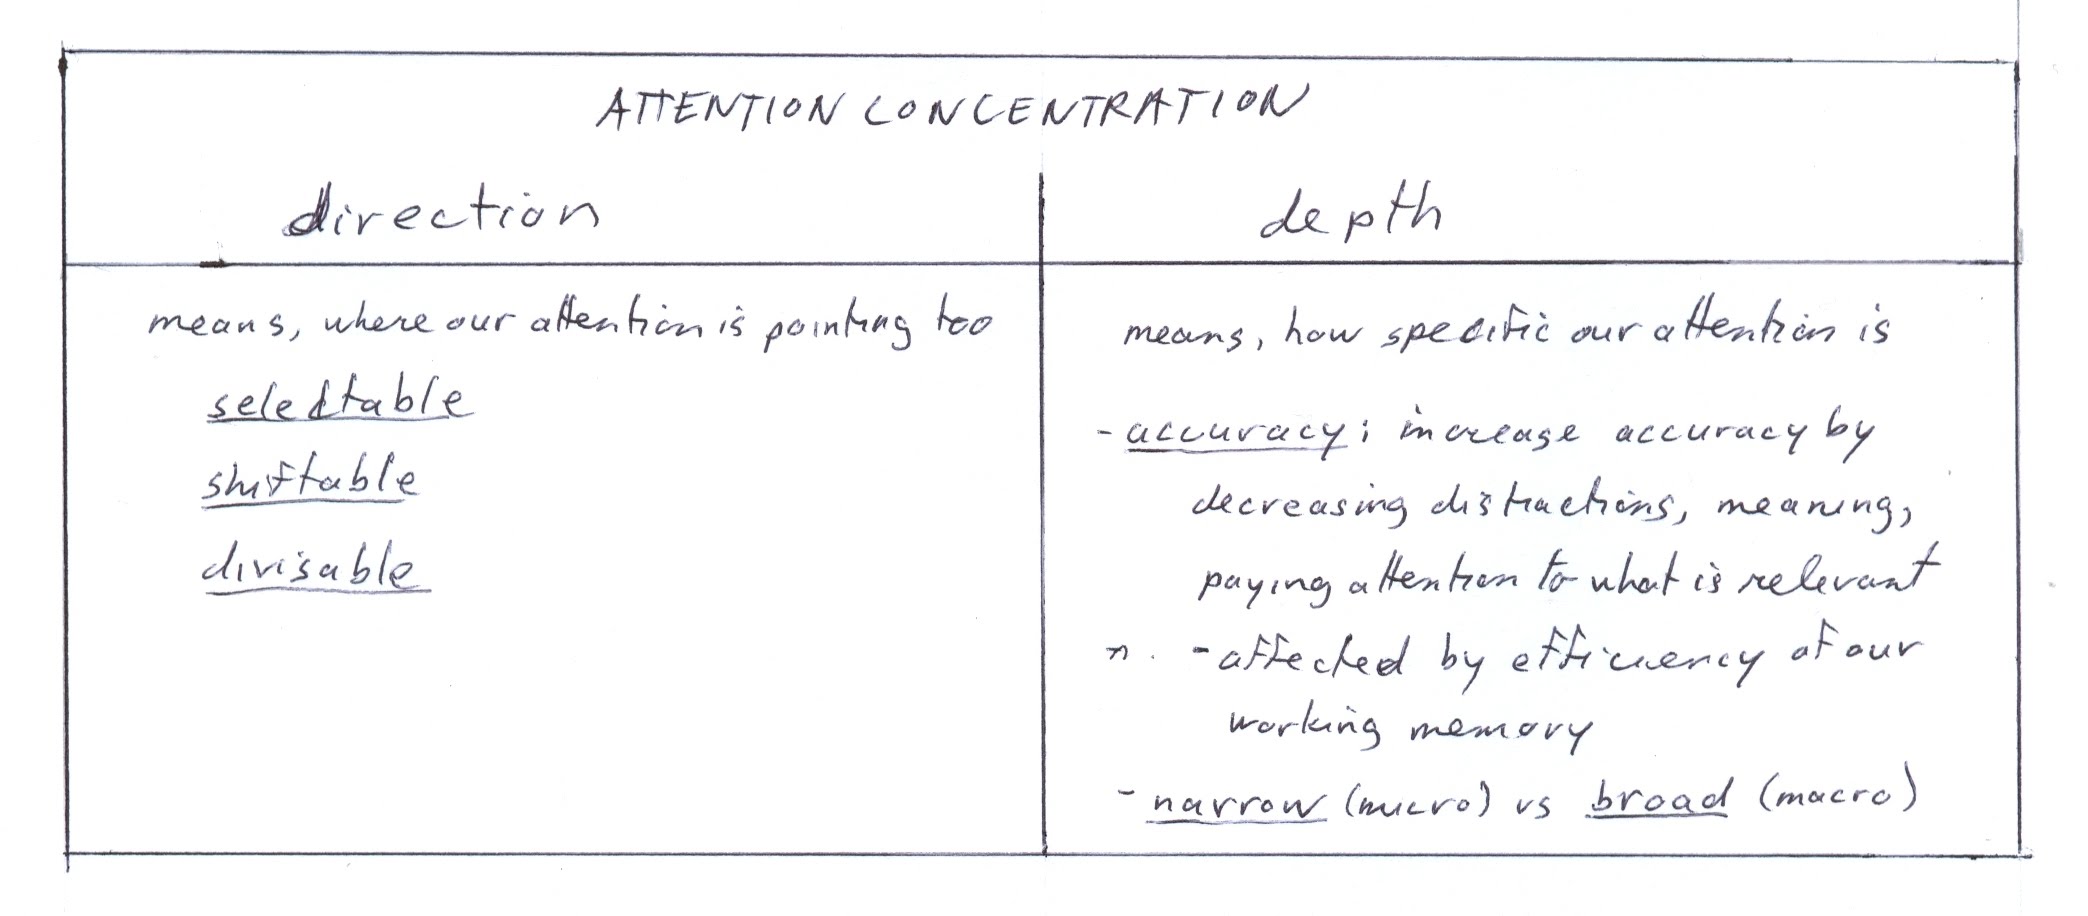 ATTENTION CONCENTRATION
direction
depth
means, where our attention is pointing too
selectable
shiftable
divisable
means, how specific our attention is
- accuracy; increase accuracy by
decreasing distractions, meaning,
paying attention to what is relevant
- affected by efficiency of our
working memory
- narrow (micro) vs broad (macro)